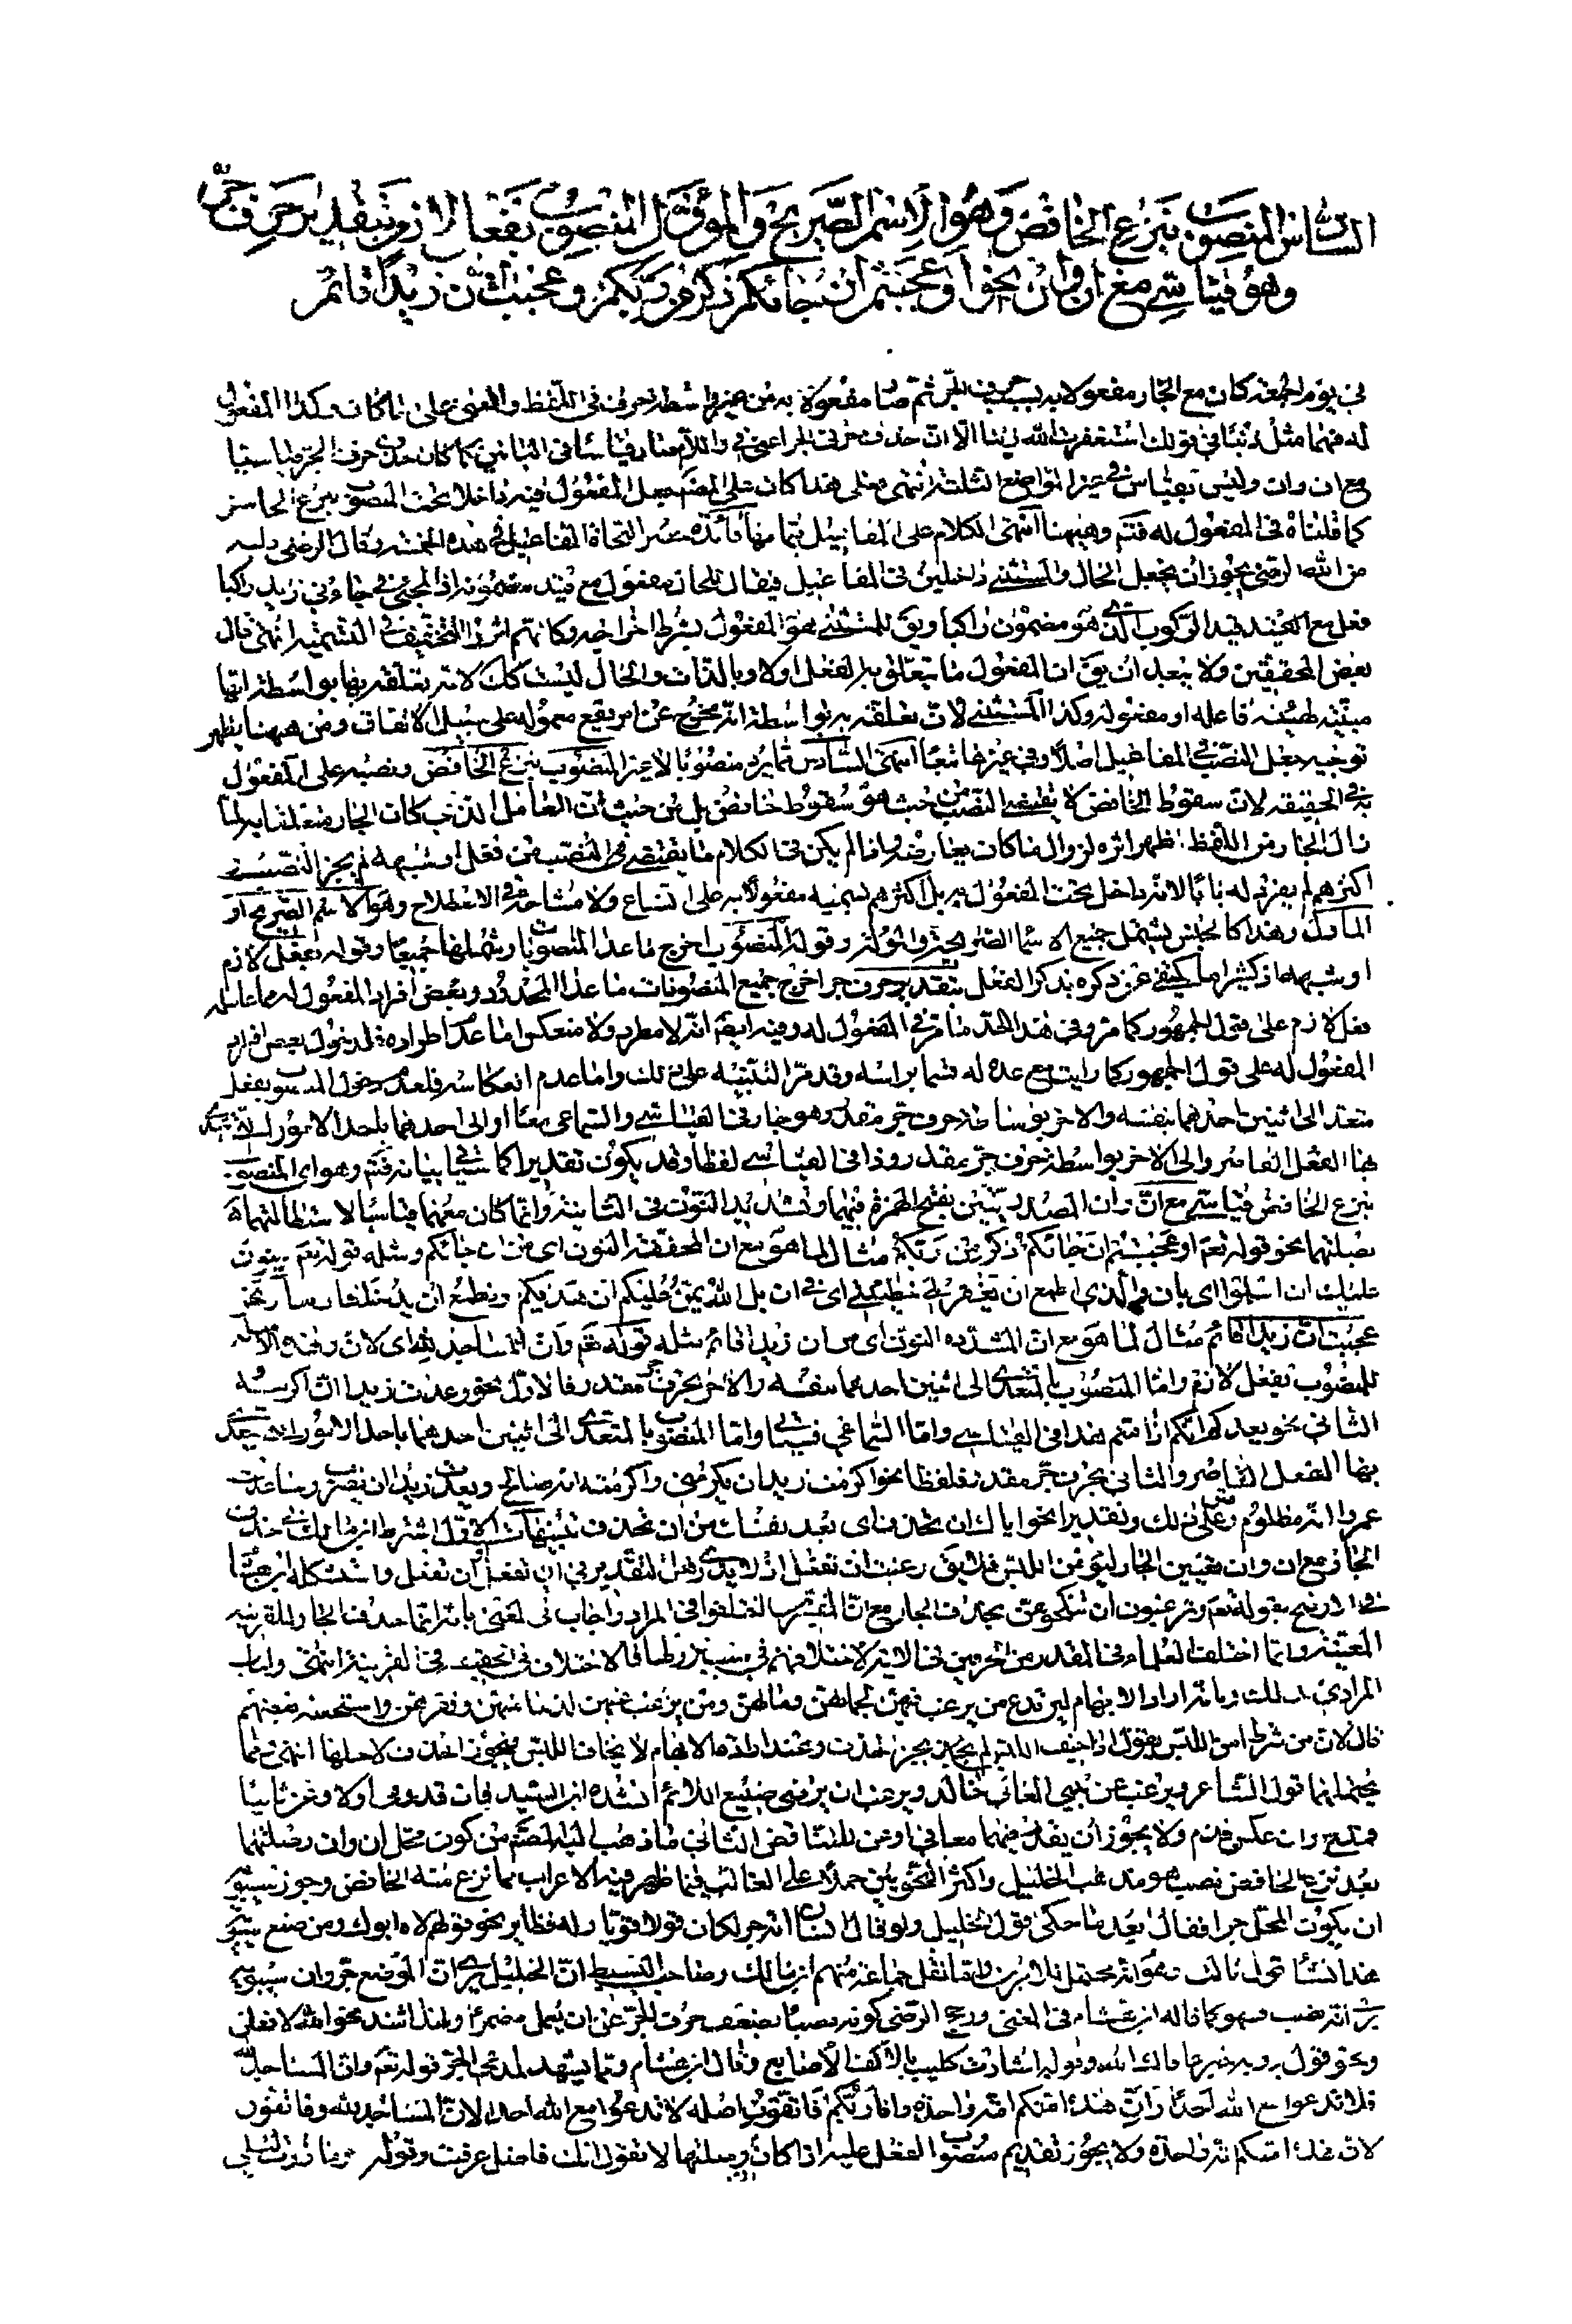 السادس المنصوب بنزع الخافض وهو الاسم الصريح والمؤول المنصوب بفعل لازم بتقدير حرف جر
وهو قياسي مع ان وان نحو او عجبتم ان جائكم ذكر من ربكم وعجبت ان زيدا قائم
في يوم الجمعة كان مع الجار مفعولا به بسبب حرف الجر ثم صار مفعولا به من غير واسطة حرف في اللفظ والمعنى على ما كان وكذا المفعول
له فهما مثل ذنبا في قولك استغفرت الله ذنبا الا ان حذف حرفي الجر اعني في واللام صار قياسا في البابين كما كان حذف حرف الجر قياسيا
مع ان وان وليس بقياس في غير المواضع الثلثة انتهى فعلى هذا كان على المصنف جعل المفعول فيه داخلا تحت المنصوب بنزع الخافض
كما قلناه في المفعول له فتم وههنا انتهى الكلام على المفاعيل بتمامها فائدة حصر النحاة المفاعيل في هذه الخمسة وقال الرضي عليه
من الله الرضى يجوز ان يجعل الحال والمستثنى داخلين في المفاعيل فيقال للحال مفعول مع قيد مضمونه اذ المجيء في جاءني زيد راكبا
فعل مع القيد قيد الركوب الذي هو مضمون راكبا ويق للمستثنى هو المفعول بشرط اخراجه وكانهم اثروا التخفيف في التسمية انتهى قال
بعض المحققين ولا يبعد ان يق ان المفعول ما يتعلق به الفعل اولا وبالذات والحال ليست كك لانه يتعلقه بها بواسطة انها
مبينة لهيئة فاعله او مفعوله وكذا المستثنى لان تعلقه به بواسطة انه مخرج عن امر يقع معموله على سبيل الاتفاق ومن ههنا يظهر
توجيه جعل النصب في المفاعيل اصلا وفي غيرها تبعا انتهى السادس مما يرد منصوبا لا غير المنصوب بنزع الخافض ونصبه على المفعول
به في الحقيقة لان سقوط الخافض لا يقتضي النصب من حيث هو سقوط خافض بل من حيث ان العامل الذي كان الجار متعلقا به لما
زال الجار من اللفظ ظهر اثره لزوال ما كان يعارضه واذا لم يكن في الكلام ما يقتضي النصب من فعل او شبهه لم يجز النصب
اكثرهم لم يفرد له بابا لانه داخل تحت المفعول به بل اكثرهم تسميه مفعولا به على اتساع ولا مشاحة في الاصطلاح وهو الاسم الصريح او
المأول وهذا كالجنس يشتمل جميع الاسماء الصريحة والمؤولة وقوله المنصوب اخرج ما عدا المنصوبات وشملها جميعا وقوله بفعل لازم
او شبهه اذ كثيرا ما يكتفى عن ذكره بذكر الفعل بتقدير حرف جر اخرج جميع المنصوبات ما عدا المحدود وبعض افراد المفعول له مما عامله
فعل لازم على قول الجمهور كما مر وفي هذا الحد ما مر في المفعول له وفيه ايضا انه لا مطرد ولا منعكس اما عدم اطراده فلدخول بعض افراد
المفعول له على قول الجمهور كما رايت مع عده له قسما براسه وقد مر التنبيه على ذلك واما عدم انعكاسه فلعدم دخول المنصوب بفعل
متعد الى اثنين احدهما بنفسه والاخر بوساطة حرف جر مقدر وهو جار في القياسي والسماعي معا او الى احدهما باحد الامور التي يتعدى
بها الفعل القاصر والى الاخر بواسطة حرف جر مقدر وذا في القياسي لفظا وقد يكون تقديرا كما سيأتي بيانه فتم وهو اي المنصوب
بنزع الخافض قياسي مع ان وان المصدريتين بفتح الهمزة فيهما وتشديد النون في الثانية وانما كان معهما قياسيا لاستطالتهما
بصلتهما نحو قوله تعم او عجبتم ان جائكم ذكر من ربكم مثال لما هو مع ان المخففة النون اي من ان جائكم ومثله قوله تعم يمنون
عليك ان اسلموا اي بان والذي اطمع ان يغفر لي خطيئتي اي في ان بل الله يمن عليكم ان هديكم ونطمع ان يدخلنا ربنا ونحو
عجبت ان زيدا قائم مثال لما هو مع ان المشددة النون اي من ان زيدا قائم مثله قوله تعم وان المساجد لله اي لان وهذه الامثلة
للمنصوب بفعل لازم واما المنصوب بالمتعدي الى اثنين احدهما بنفسه والاخر بحرف مقدر فالاول نحو وعدت زيدا ان اكرمه
الثاني نحو يعدكم انكم اذا متم هذا في القياسي واما السماعي فسيأتي واما المنصوب بالمتعدي الى اثنين احدهما باحد الامور التي يتعدى
بها الفعل القاصر والثاني بحرف جر مقدر فلفظا نحو اكرمت زيدا ان يكرمني واكرمته انه صالح
عمروا انه مظلوم وعلى ذلك وتقديرا نحو اياك ان تحذف اي بعد نفسك من ان تحذف تنبيهات الاول اشترط ابن مالك في حذف
الجار مع ان وان تعيين الجار ليؤمن اللبس فلا يق رغبت ان تفعل اذ لا يدرى هل التقدير في ان تفعل او عن ان تفعل واستشكله ابن هشام
في التوضيح بقوله تعم وترغبون ان تنكحوهن بحذف الجار مع ان المفسرين اختلفوا في المراد واجاب في المغني بانه انما حذف الجار للقرينة
المعينة وانما اختلف العلماء في المقدر من الحرفين في الاية لاختلافهم في سبب نزولها فالاختلاف في الحقيقة في القرينة انتهى واجاب
المرادي
قال لان من شرط امن اللبس يقول اذا خيف اللبس لم يجز الحذف وعند اطلاق الابهام لا يخاف اللبس فيجوز الحذف لاجلها انتهى
يحتملهما قول الشاعر ويرغب عن
ولا يجوز ان يقدر فيهما معا في او عن للتناقض الثاني ما ذهب اليه المصنف من كون محل ان وان وصلتهما
بعد نزع الخافض نصب هو مذهب الخليل واكثر النحويين حملا على الغالب فيما ظهر فيه الاعراب مما نزع منه الخافض وجوز سيبويه
ان يكون المحل جرا فقال بعد ما حكى قول الخليل ولو قال انسان انه جر لكان قولا قويا وله نظائر نحو قولهم لاه ابوك
واما نقل جماعة منهم ابن مالك وصاحب البسيط ان الخليل يرى ان الموضع جر وان سيبويه
يرى انه نصب فسهو كما قاله ابن هشام في المغني ورجح الرضي كونه نصبا بضعف حرف الجر عن ان يعمل مضمرا ولهذا شذ نحو الله لافعلن
ونحو قول رؤبة خير عافاك الله وقوله اشارت كليب بالاكف الاصابع وقال ابن هشام ومما يشهد لمدعي الجر قوله تعم وان المساجد لله
فلا تدعوا مع الله احدا وان هذه امتكم امة واحدة وانا ربكم فاتقون اصله لا تدعوا مع الله احدا لان المساجد لله وفاتقون
لان هذه امتكم امة واحدة ولا يجوز تقديم منصوب الفعل عليه اذا كان ان وصلتها لا تقول انك فاضل عرفت وقوله وما زرت ليلى